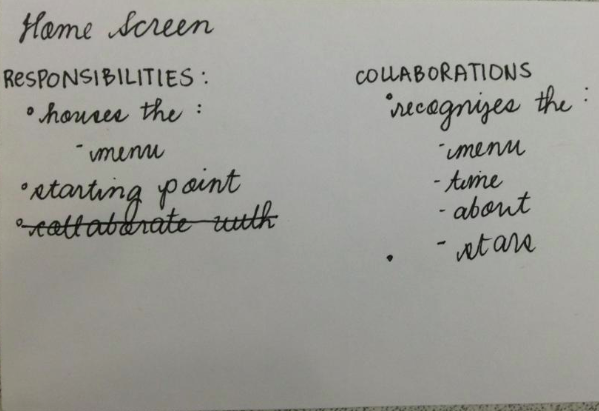 Home Screen
RESPONSIBILITIES:
• houses the :
- menu
• starting point
• collaborate with
COLLABORATIONS
• recognizes the :
- menu
- time
- about
- stars
•